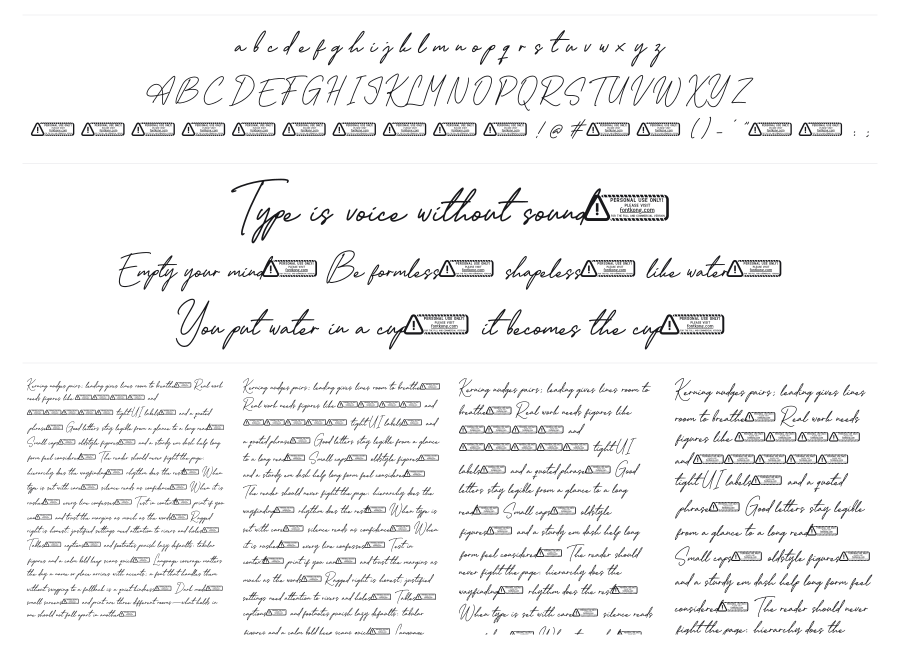 a b c d e f g h i j k l m n o p q r s t u v w x y z
A B C D E F G H I J K L M N O P Q R S T U V W X Y Z
! @ # ( ) - ' " : ;
Type is voice without sound
PERSONAL USE ONLY!
PLEASE VISIT
fontkong.com
Empty your mind Be formless shapeless like water
You put water in a cup it becomes the cup
Kerning nudges pairs; leading gives lines room to breathe Real work
needs figures like and
tight UI labels and a quoted
phrase Good letters stay legible from a glance to a long read
Small caps oldstyle figures and a sturdy em dash help long
form feel considered The reader should never fight the page:
hierarchy does the wayfinding rhythm does the rest When
type is set with care silence reads as confidence When it is
rushed every line confesses Test in context print if you
can and trust the margins as much as the words Ragged
right is honest; justified settings need attention to rivers and
Tables captions and footnotes punish lazy defaults: tabular
figures and a calm bold bring scans quick Language coverage matters
the day a name or place arrives with accents; a font that handles them
without swapping to a fallback is a quiet Dark mode
small screens and print are three different rooms—what holds in
one should not fall apart in another
Kerning nudges pairs; leading gives lines room to breathe
Real work needs figures like and
tight UI labels and
a quoted phrase Good letters stay legible from a glance
to a long read Small caps oldstyle figures
and a sturdy em dash help long form feel considered
The reader should never fight the page: hierarchy does the
wayfinding rhythm does the rest When type is
set with care silence reads as confidence When
it is rushed every line confesses Test in
context print if you can and trust the margins as
much as the words Ragged right is honest; justified
settings need attention to rivers and Tables
captions and footnotes punish lazy defaults: tabular
figures and a calm bold
Kerning nudges pairs; leading gives lines room to
breathe Real work needs figures like
and
tight UI
labels and a quoted phrase Good
letters stay legible from a glance to a long
read Small caps oldstyle
figures and a sturdy em dash help long
form feel considered The reader should
never fight the page: hierarchy does the
wayfinding rhythm does the rest
When type is set with care silence reads
Kerning nudges pairs; leading gives lines
room to breathe Real work needs
figures like
and
tight UI labels and a quoted
phrase Good letters stay legible
from a glance to a long read
Small caps oldstyle figures
and a sturdy em dash help long form feel
considered The reader should never
fight the page: hierarchy does the